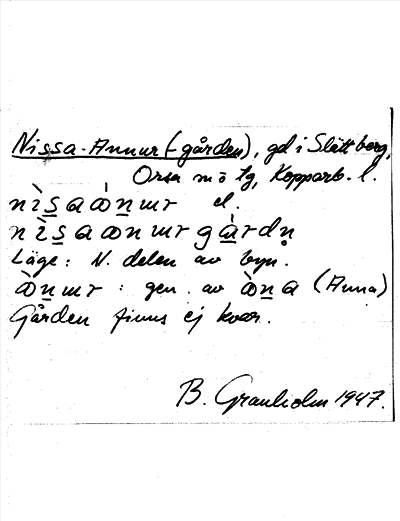 Nissa-Annur (-gården), gd i Slättberg,
Orsa sn o tg, Kopparb. l.
nìsaànɯr el.
nìsaanɯr gàrdṇ
Läge: N. delen av byn.
ànɯr : gen. av àna (Anna)
Gården finns ej kvar.
B. Granholm 1947.